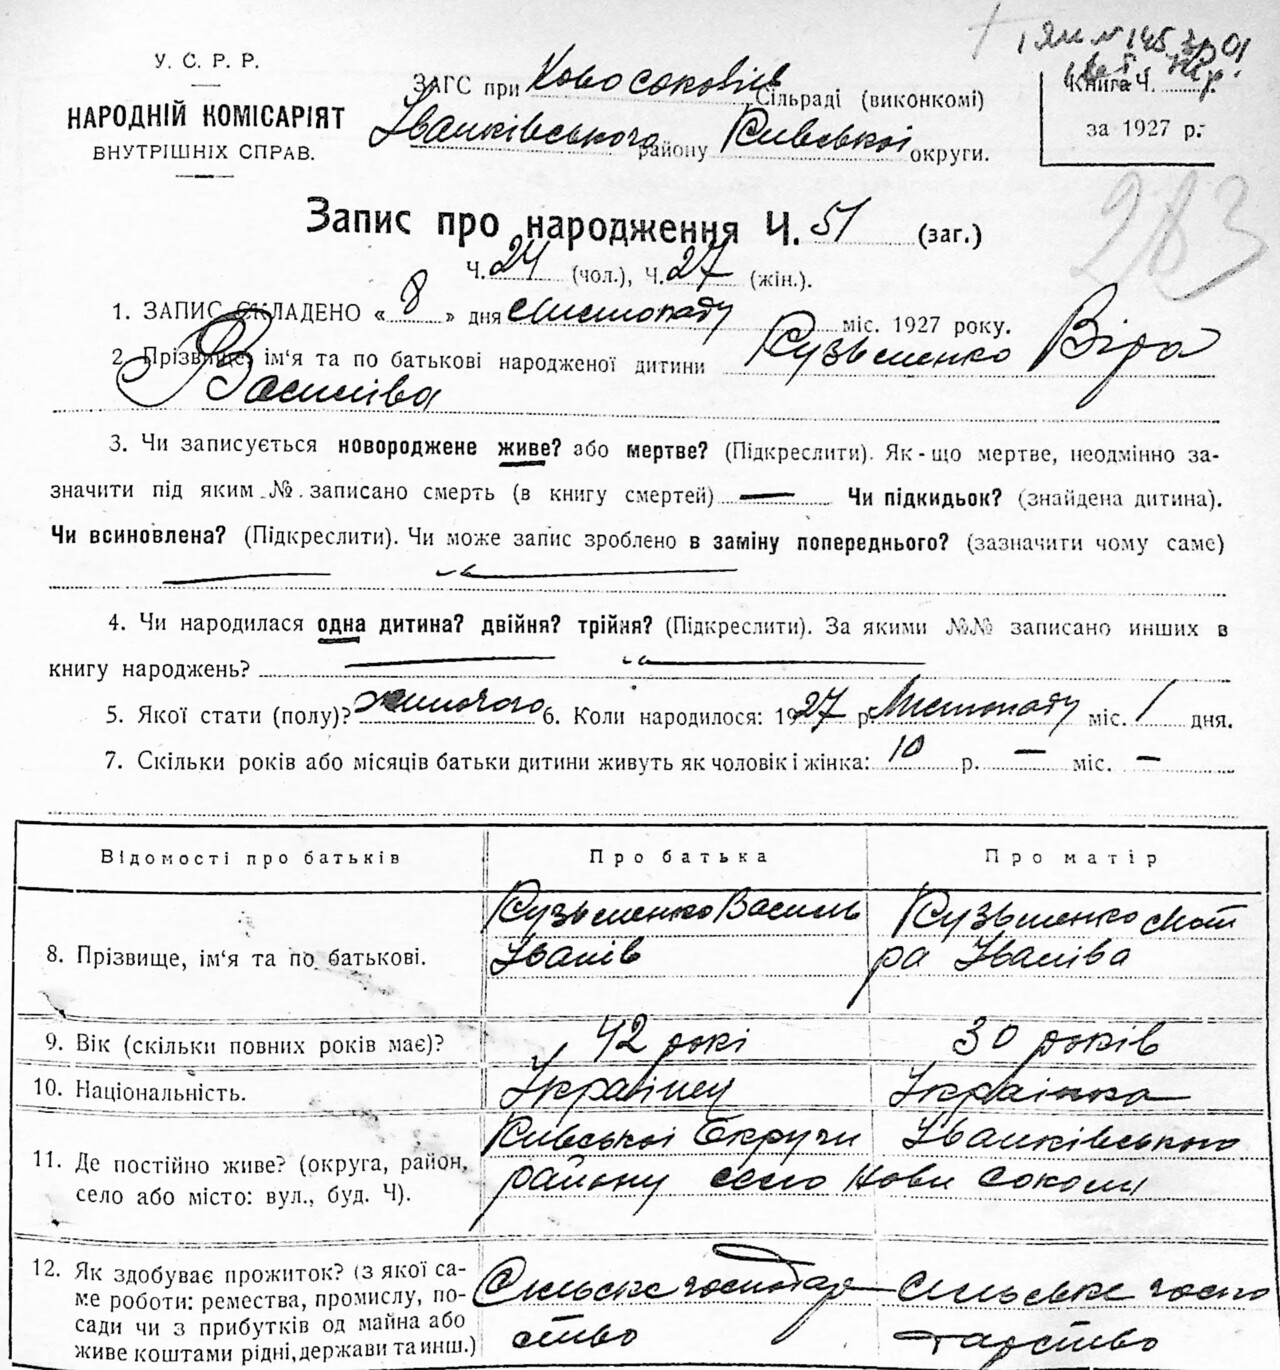 У. С. Р. Р.
НАРОДНІЙ КОМІСАРІЯТ
ВНУТРІШНІХ СПРАВ.
ЗАГС при Сільраді (виконкомі)
Іванківського району Київської округи.
Книга Ч.
за 1927 р.
283
Запис про народження Ч. 51 (заг.)
Ч. 24 (чол.), Ч. 27 (жін.).
1. ЗАПИС СКЛАДЕНО « 8 » дня Листопаду міс. 1927 року.
2. Прізвище, ім'я та по батькові народженої дитини Кузьменко Віра
Василіва
3. Чи записується новороджене живе? або мертве? (Підкреслити). Як-що мертве, неодмінно за-
значити під яким № записано смерть (в книгу смертей) — Чи підкидьок? (знайдена дитина).
Чи всиновлена? (Підкреслити). Чи може запис зроблено в заміну попереднього? (зазначити чому саме)
4. Чи народилася одна дитина? двійня? трійня? (Підкреслити). За якими №№ записано инших в
книгу народжень?
5. Якої стати (полу)? жиночого 6. Коли народилося: 1927 р. Листопаду міс. 1 дня.
7. Скільки років або місяців батьки дитини живуть як чоловік і жінка: 10 р. — міс. —
Відомості про батьків Про батька Про матір
8. Прізвище, ім'я та по батькові. Кузьменко Василь Іванів Кузьменко Мотра Іваніва
9. Вік (скільки повних років має)? 42 рокі 30 років
10. Національність. Українец Українка
11. Де постійно живе? (округа, район, Київської Округи Іванківського
село або місто: вул., буд. Ч). району село Нови Соколи
12. Як здобуває прожиток? (з якої са-
ме роботи: ремества, промислу, по-
сади чи з прибутків од майна або
живе коштами рідні, держави та инш.)
Сильске господарство Сильське господарство